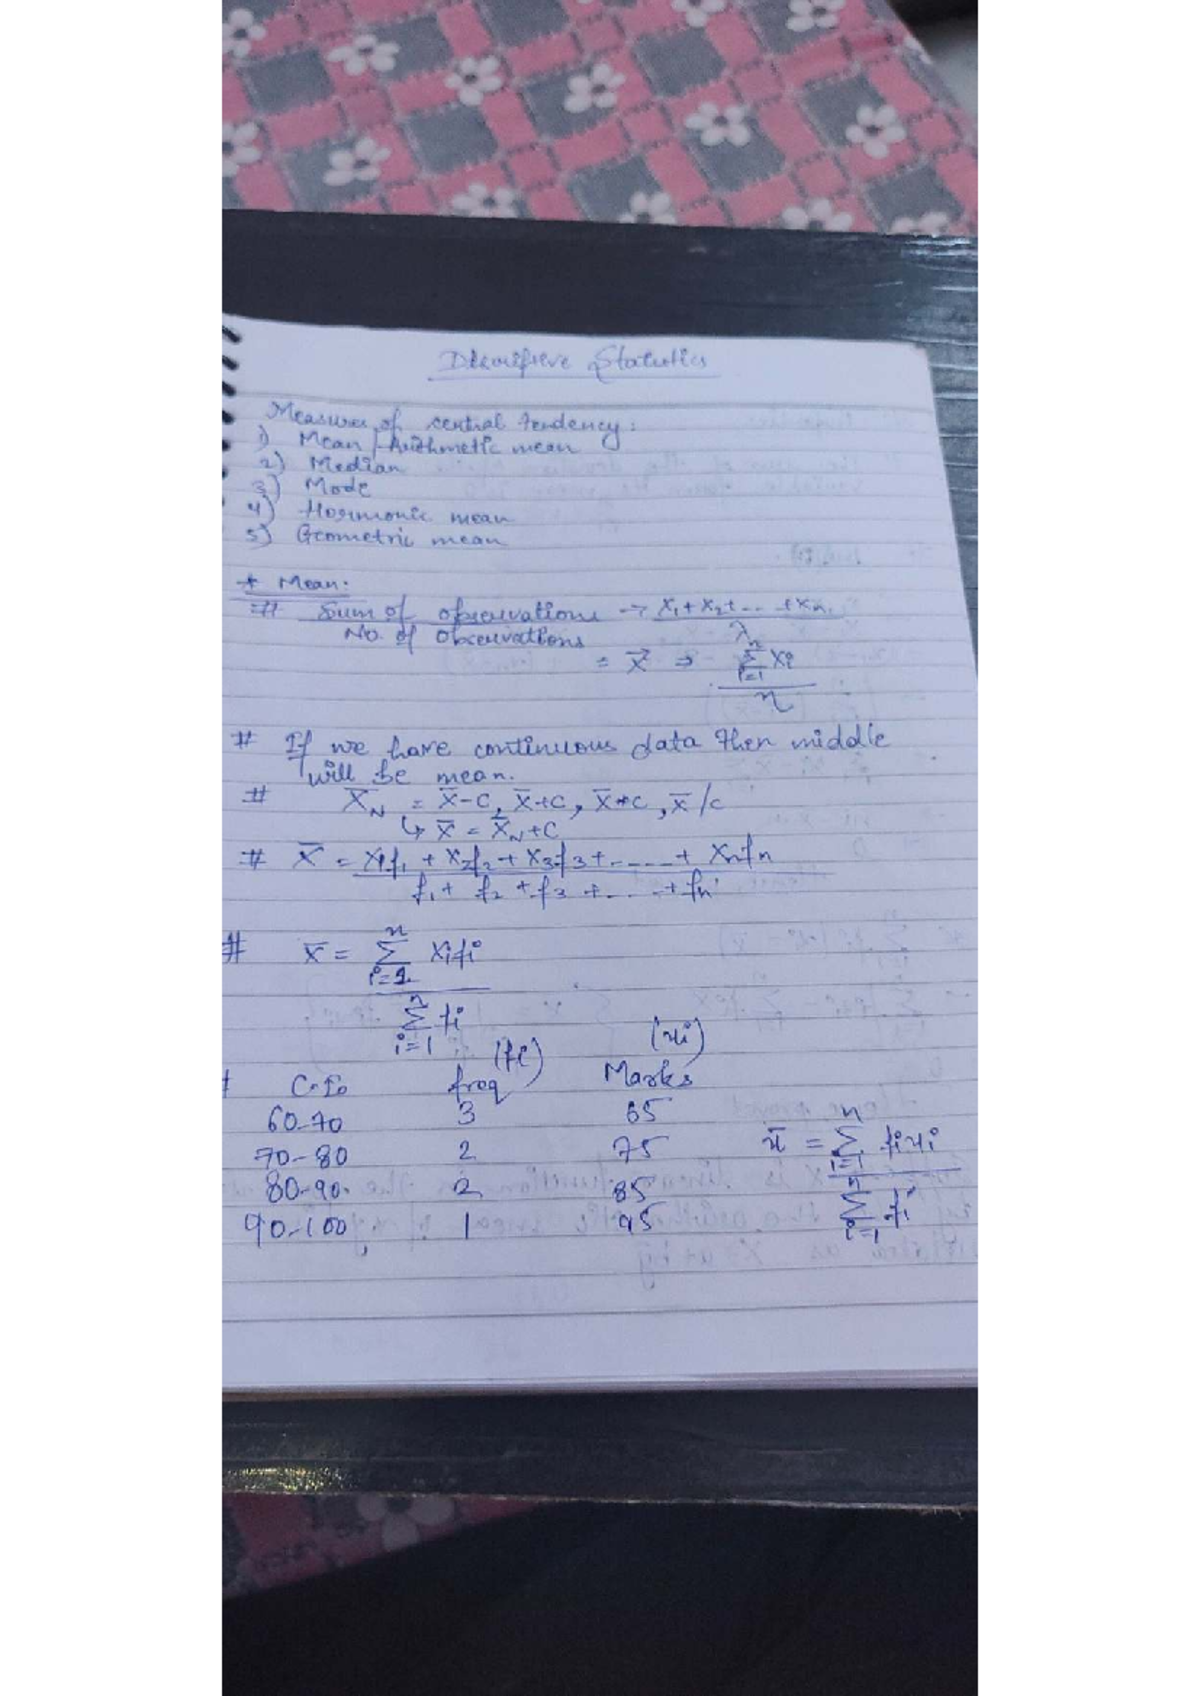 Descriptive Statistics
Measures of central tendency:
1) Mean / Arithmetic mean
2) Median
3) Mode
4) Harmonic mean
5) Geometric mean
* Mean:
# Sum of observations → x₁ + x₂ + ... + xₙ
No. of observations
= x̄ ⇒ Σ xᵢ
i=1
n
# If we have continuous data then middle
will be mean.
# X̄_N = x̄-c, x̄+c, x̄*c, x̄/c
↳ x̄ = x̄_N + c
# x̄ = x₁f₁ + x₂f₂ + x₃f₃ + ...... + xₙfₙ
f₁ + f₂ + f₃ + ... + fₙ
# x̄ = Σ xᵢfᵢ
n
i=1
n
Σ fᵢ
i=1
(fi) (xi)
C.I. freq Marks
60-70 3 65
70-80 2 75 x̄ = Σ fᵢxᵢ
n
i=1
80-90 2 85 Σ fᵢ
n
i=1
90-100 1 95